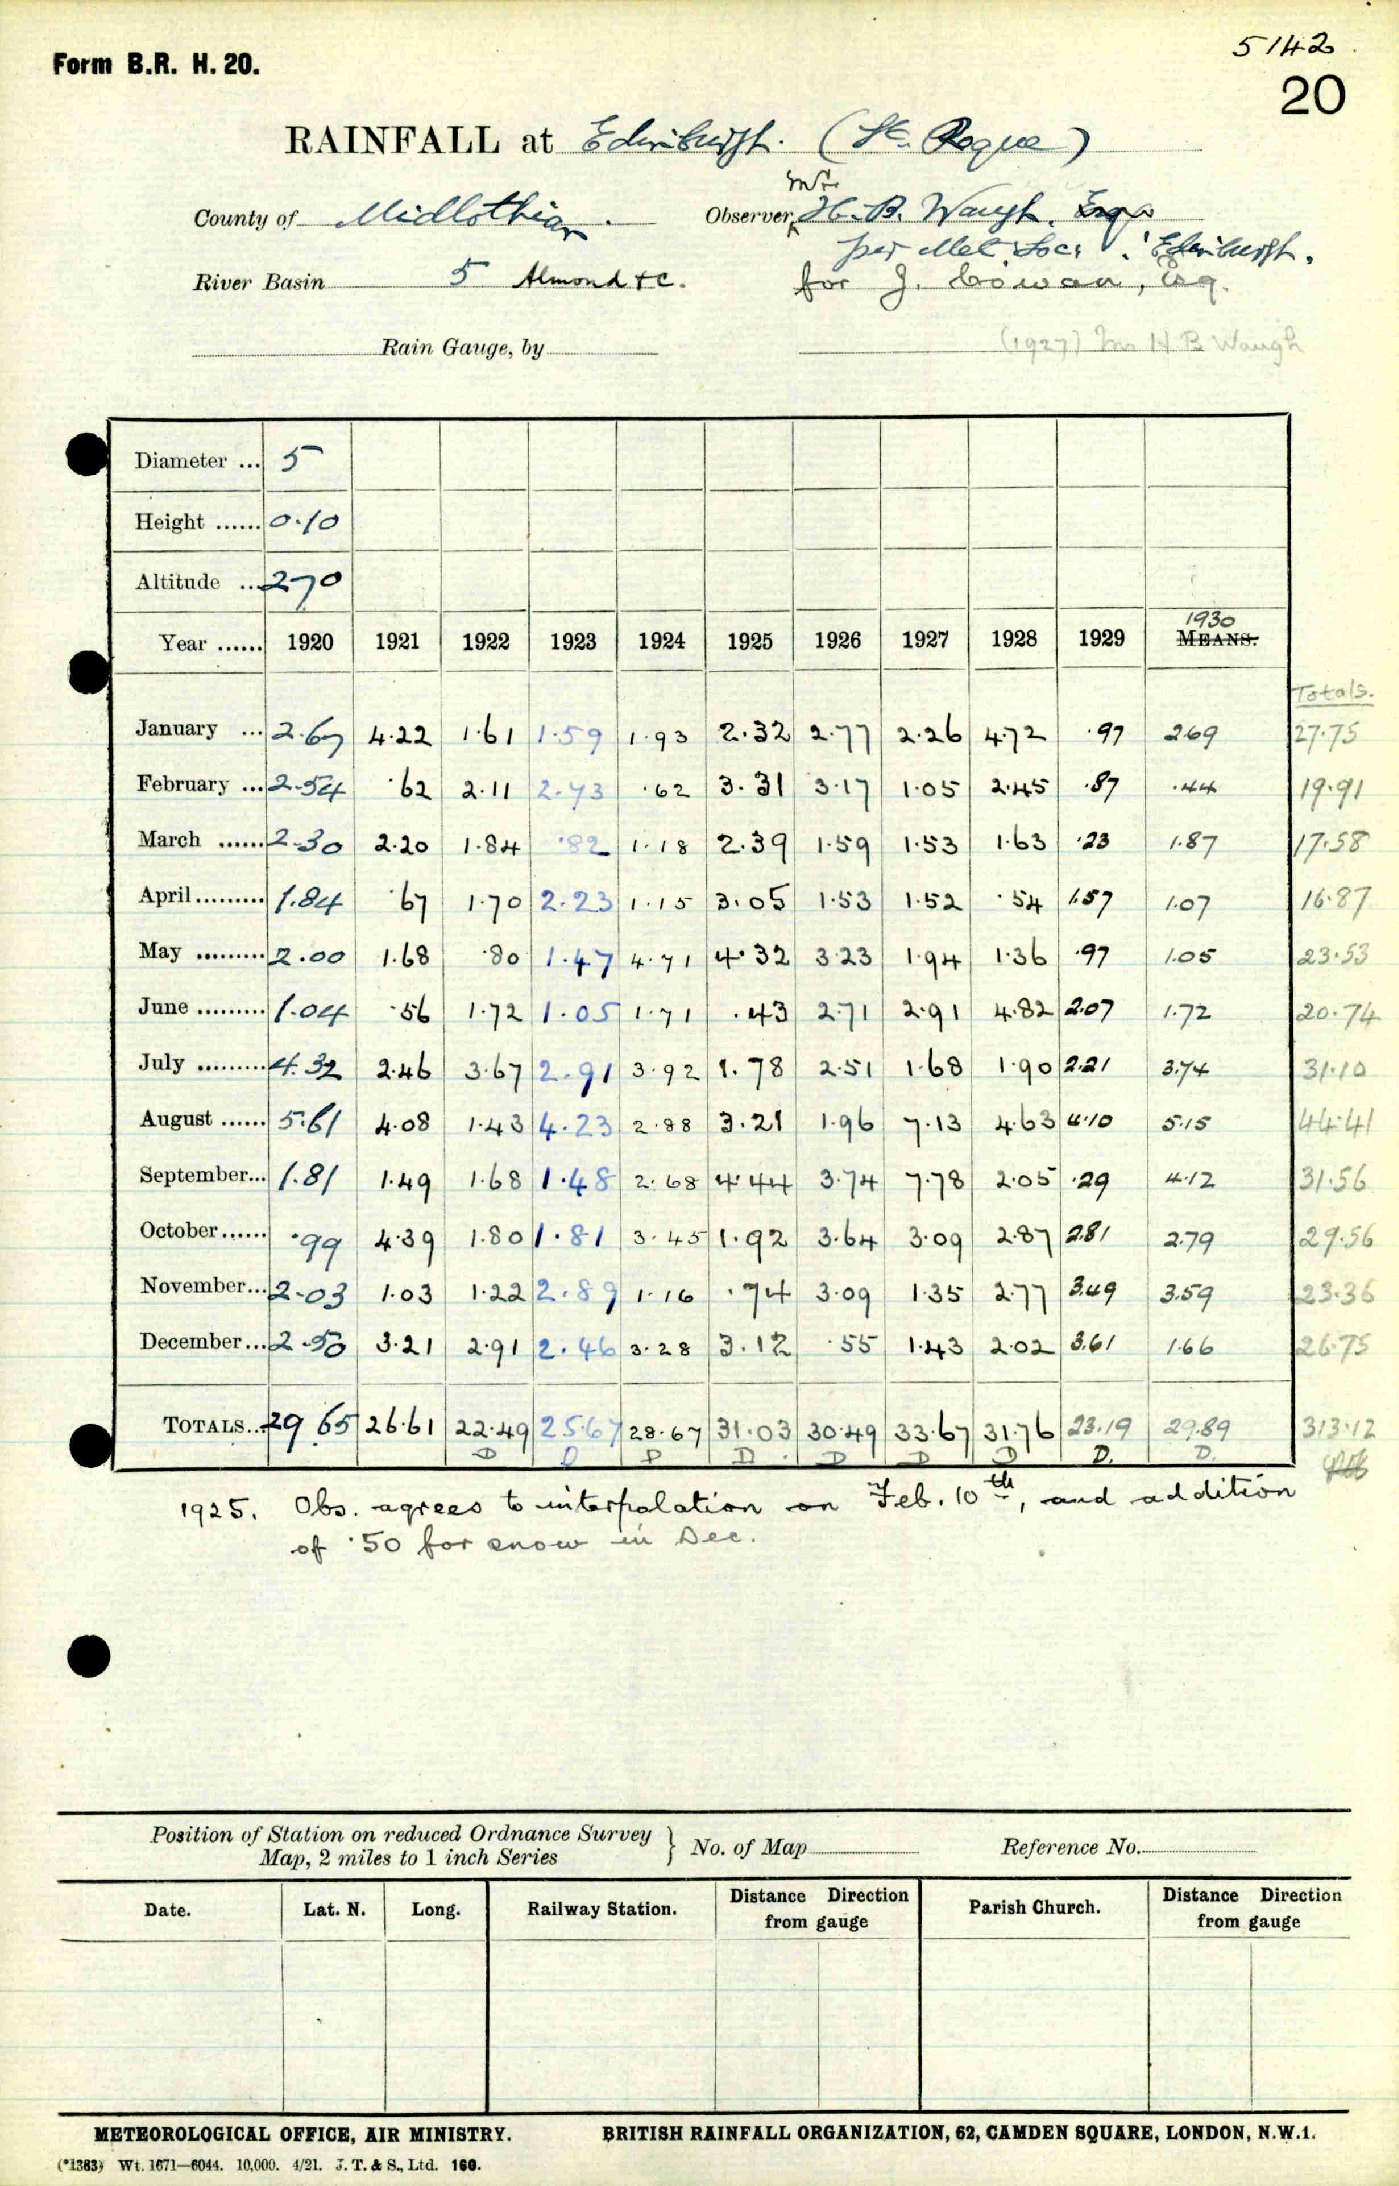 Form B.R. H. 20.
5142
20
RAINFALL at Edinburgh. (St. Roque)
Mr
County of Midlothian. Observer, H. B. Waugh, Esq
per Met. Soc. Edinburgh.
River Basin 5 Almond &c. for J. Cowan, Esq.
Rain Gauge, by (1927) Mr H B Waugh
Diameter ... 5
Height ...... 0·10
Altitude ... 270
1930
Year ...... 1920 1921 1922 1923 1924 1925 1926 1927 1928 1929 MEANS.
Totals.
January ... 2·67 4·22 1·61 1·59 1·93 2·32 2·77 2·26 4·72 ·97 2·69 27·75
February ... 2·54 ·62 2·11 2·73 ·62 3·31 3·17 1·05 2·45 ·87 ·44 19·91
March ...... 2·30 2·20 1·84 ·82 1·18 2·39 1·59 1·53 1·63 ·23 1·87 17·58
April ......... 1·84 ·67 1·70 2·23 1·15 3·05 1·53 1·52 ·54 1·57 1·07 16·87
May ......... 2·00 1·68 ·80 1·47 4·71 4·32 3·23 1·94 1·36 ·97 1·05 23·53
June ......... 1·04 ·56 1·72 1·05 1·71 ·43 2·71 2·91 4·82 2·07 1·72 20·74
July ......... 4·32 2·46 3·67 2·91 3·92 1·78 2·51 1·68 1·90 2·21 3·74 31·10
August ...... 5·61 4·08 1·43 4·23 2·88 3·21 1·96 7·13 4·63 4·10 5·15 44·41
September... 1·81 1·49 1·68 1·48 2·68 4·44 3·74 7·78 2·05 ·29 4·12 31·56
October...... ·99 4·39 1·80 1·81 3·45 1·92 3·64 3·09 2·87 2·81 2·79 29·56
November... 2·03 1·03 1·22 2·89 1·16 ·74 3·09 1·35 2·77 3·49 3·59 23·36
December... 2·50 3·21 2·91 2·46 3·28 3·12 ·55 1·43 2·02 3·61 1·66 26·75
TOTALS... 29 65 26·61 22·49 25·67 28·67 31·03 30·49 33·67 31·76 23·19 29·89 313·12
D D D D D D D D. D.
1925. Obs. agrees to interpolation on Feb. 10th, and addition
of ·50 for snow in Dec.
Position of Station on reduced Ordnance Survey
Map, 2 miles to 1 inch Series } No. of Map Reference No.
Date. Lat. N. Long. Railway Station. Distance from gauge Direction Parish Church. Distance from gauge Direction
METEOROLOGICAL OFFICE, AIR MINISTRY. BRITISH RAINFALL ORGANIZATION, 62, CAMDEN SQUARE, LONDON, N.W.1.
(*1383) Wt. 1671—6044. 10,000. 4/21. J. T. & S., Ltd. 160.